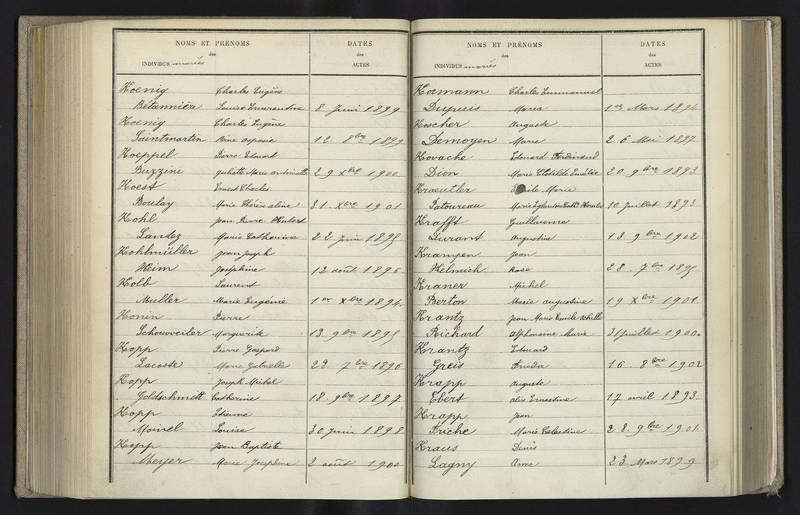 NOMS ET PRÉNOMS
des
INDIVIDUS mariés
DATES
des
ACTES
Hoenig Charles Eugène
Bétannière Louise Emerantine 8 Juin 1899
Hoenig Charles Eugène
Saintmartin Aspasie 12. 8bre 1899
Hoeppel Pierre Edouard
Buzzini Juliette Marie Antoinette 29 Xbre 1900
Hoest Ernest Charles
Boulay Marie Thérèse aline 31 Xbre 1901
Hohl Jean Pierre Hubert
Landez Marie Catherine 22 Juin 1895
Hohlmüller Jean Joseph
Heim Joséphine 12 août 1896
Holb Laurent
Muller Marie Eugénie 1er Xbre 1894
Honin Pierre
Schouweiler Marguerite 13 9bre 1895
Hopp Pierre Gaspard
Lacoste Marie Gabrielle 22. 7bre 1896
Hopp Joseph Michel
Goldschmitt Catherine 18. 9bre 1897
Hopp Etienne
Moinel Louise 30 Juin 1898
Hopp Jean Baptiste
Meyer Marie Joséphine 2 août 1900
NOMS ET PRÉNOMS
des
INDIVIDUS mariés
DATES
des
ACTES
Hormann Charles Emmanuel
Dupuis Maria 1er Mars 1894
Hoscher Auguste
Demoyen Marie 26 Mai 1897
Hovache Edouard Ferdinand
Dion Marie Clotilde 20. 9bre 1893
Kraeutler Emile Marie
Patoureau 10 Juillet 1893
Krafft Guillaume
Durant Augustine 18. 9bre 1902
Krampen Jean
Helmich Rosa 28. 7bre 1895
Kraner Michel
Berton Marie augustine 19 Xbre 1901
Krantz Jean Marie Emile Achille
Richard alphonsine Marie 31 Juillet 1900
Krantz Edouard
Greis Frieda 16. 8bre 1902
Krapp Auguste
Ebert Ernestine 17 avril 1893
Krapp Jean
Friche Marie Célestine 28. 9bre 1901
Kraus Denis
Lagny Anne 23 Mars 1899